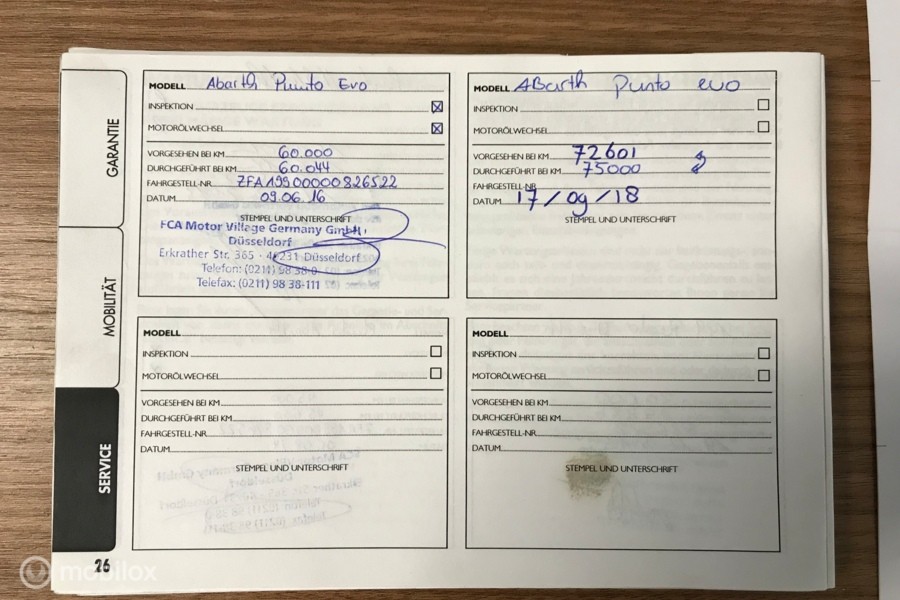 GARANTIE
MOBILITÄT
SERVICE
MODELL Abarth Punto Evo
INSPEKTION
MOTORÖLWECHSEL
VORGESEHEN BEI KM 60.000
DURCHGEFÜHRT BEI KM 60.044
FAHRGESTELL-NR. ZFA19900000826522
DATUM 09.06.16
STEMPEL UND UNTERSCHRIFT
FCA Motor Village Germany GmbH
Düsseldorf
Erkrather Str. 365 - 40231 Düsseldorf
Telefon: (0211) 98 38-0
Telefax: (0211) 98 38-111
MODELL ABarth punto evo
INSPEKTION
MOTORÖLWECHSEL
VORGESEHEN BEI KM 72601
DURCHGEFÜHRT BEI KM 75000
FAHRGESTELL-NR.
DATUM 17/09/18
STEMPEL UND UNTERSCHRIFT
MODELL
INSPEKTION
MOTORÖLWECHSEL
VORGESEHEN BEI KM
DURCHGEFÜHRT BEI KM
FAHRGESTELL-NR.
DATUM
STEMPEL UND UNTERSCHRIFT
MODELL
INSPEKTION
MOTORÖLWECHSEL
VORGESEHEN BEI KM
DURCHGEFÜHRT BEI KM
FAHRGESTELL-NR.
DATUM
STEMPEL UND UNTERSCHRIFT
26
mobilox